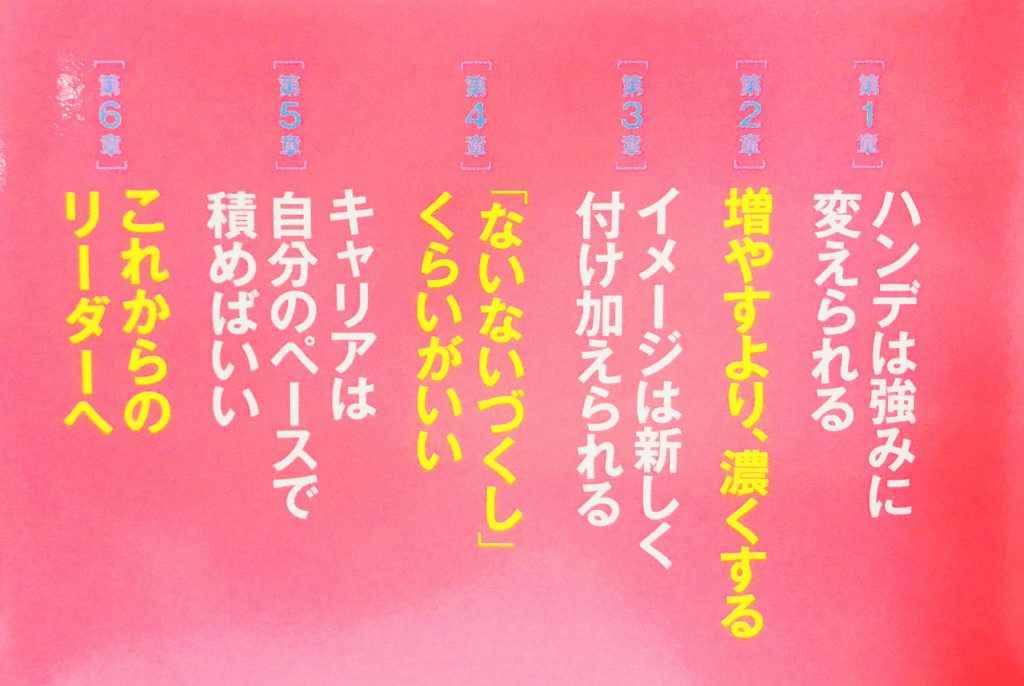 [第1章]
ハンデは強みに
変えられる
[第2章]
増やすより、濃くする
[第3章]
イメージは新しく
付け加えられる
[第4章]
「ないないづくし」
くらいがいい
[第5章]
キャリアは
自分のペースで
積めばいい
[第6章]
これからの
リーダーへ